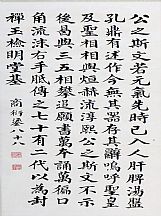 公之斯文若元氣先時已入人肝脾湯盤
孔鼎有述作今無其器存其辭嗚呼聖皇
及聖相相與烜赫流淳熙公之斯文不示
後曷與三五相攀追願書萬本誦萬徧口
角流沫右手胝傳之七十有二代以為封
禪玉檢明堂基
商衍鎏